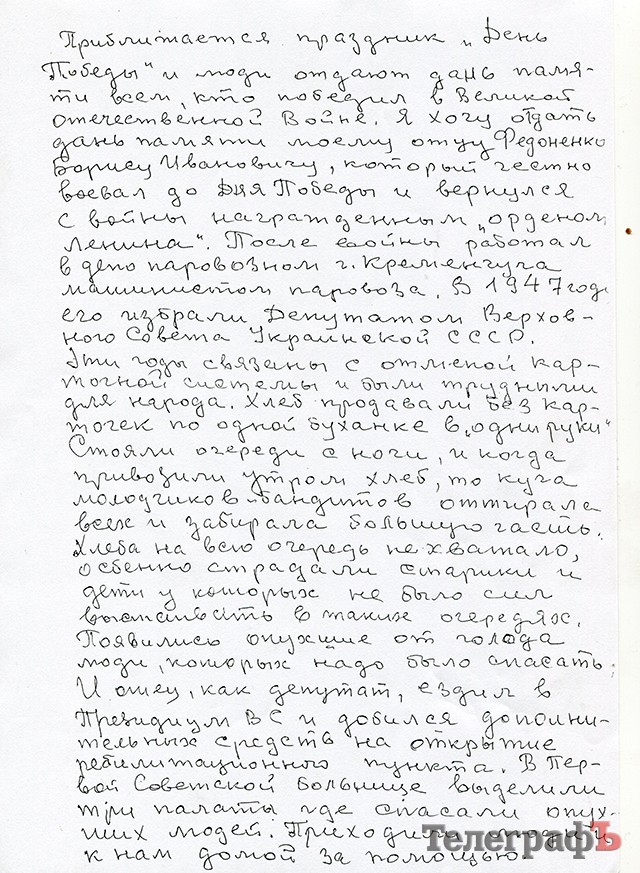 Приближается праздник „День
Победы" и люди отдают дань памя-
ти всем, кто победил в Великой
отечественной Войне. Я хочу отдать
дань памяти моему отцу Федоненко
Борису Ивановичу, который честно
воевал до Дня Победы и вернулся
с войны награжденным „орденом
Ленина". После войны работал
в депо паровозном г. Кременчуга
машинистом паровоза. В 1947 году
его избрали Депутатом Верхов-
ного Совета Украинской СССР.
Эти годы связаны с отменой кар-
точной системы и были трудными
для народа. Хлеб продавали без кар-
точек по одной буханке в „одни руки"
Стояли очереди с ночи, и когда
привозили утром хлеб, то куча
молодчиков-бандитов оттирала
всех и забирала большую часть.
Хлеба на всю очередь не хватало,
осбенно страдали старики и
дети у которых не было сил
выстаивать в таких очередях.
Появились опухшие от голода
люди, которых надо было спасать.
И отец, как депутат, ездил в
Президиум ВС и добился дополни-
тельных средств на открытие
реблитационного пункта. В Пер-
вой Советской больнице выделили
три палаты где спасали опух-
ших людей. Приходили люди и
к нам домой за помощью
ТелеграфЪ